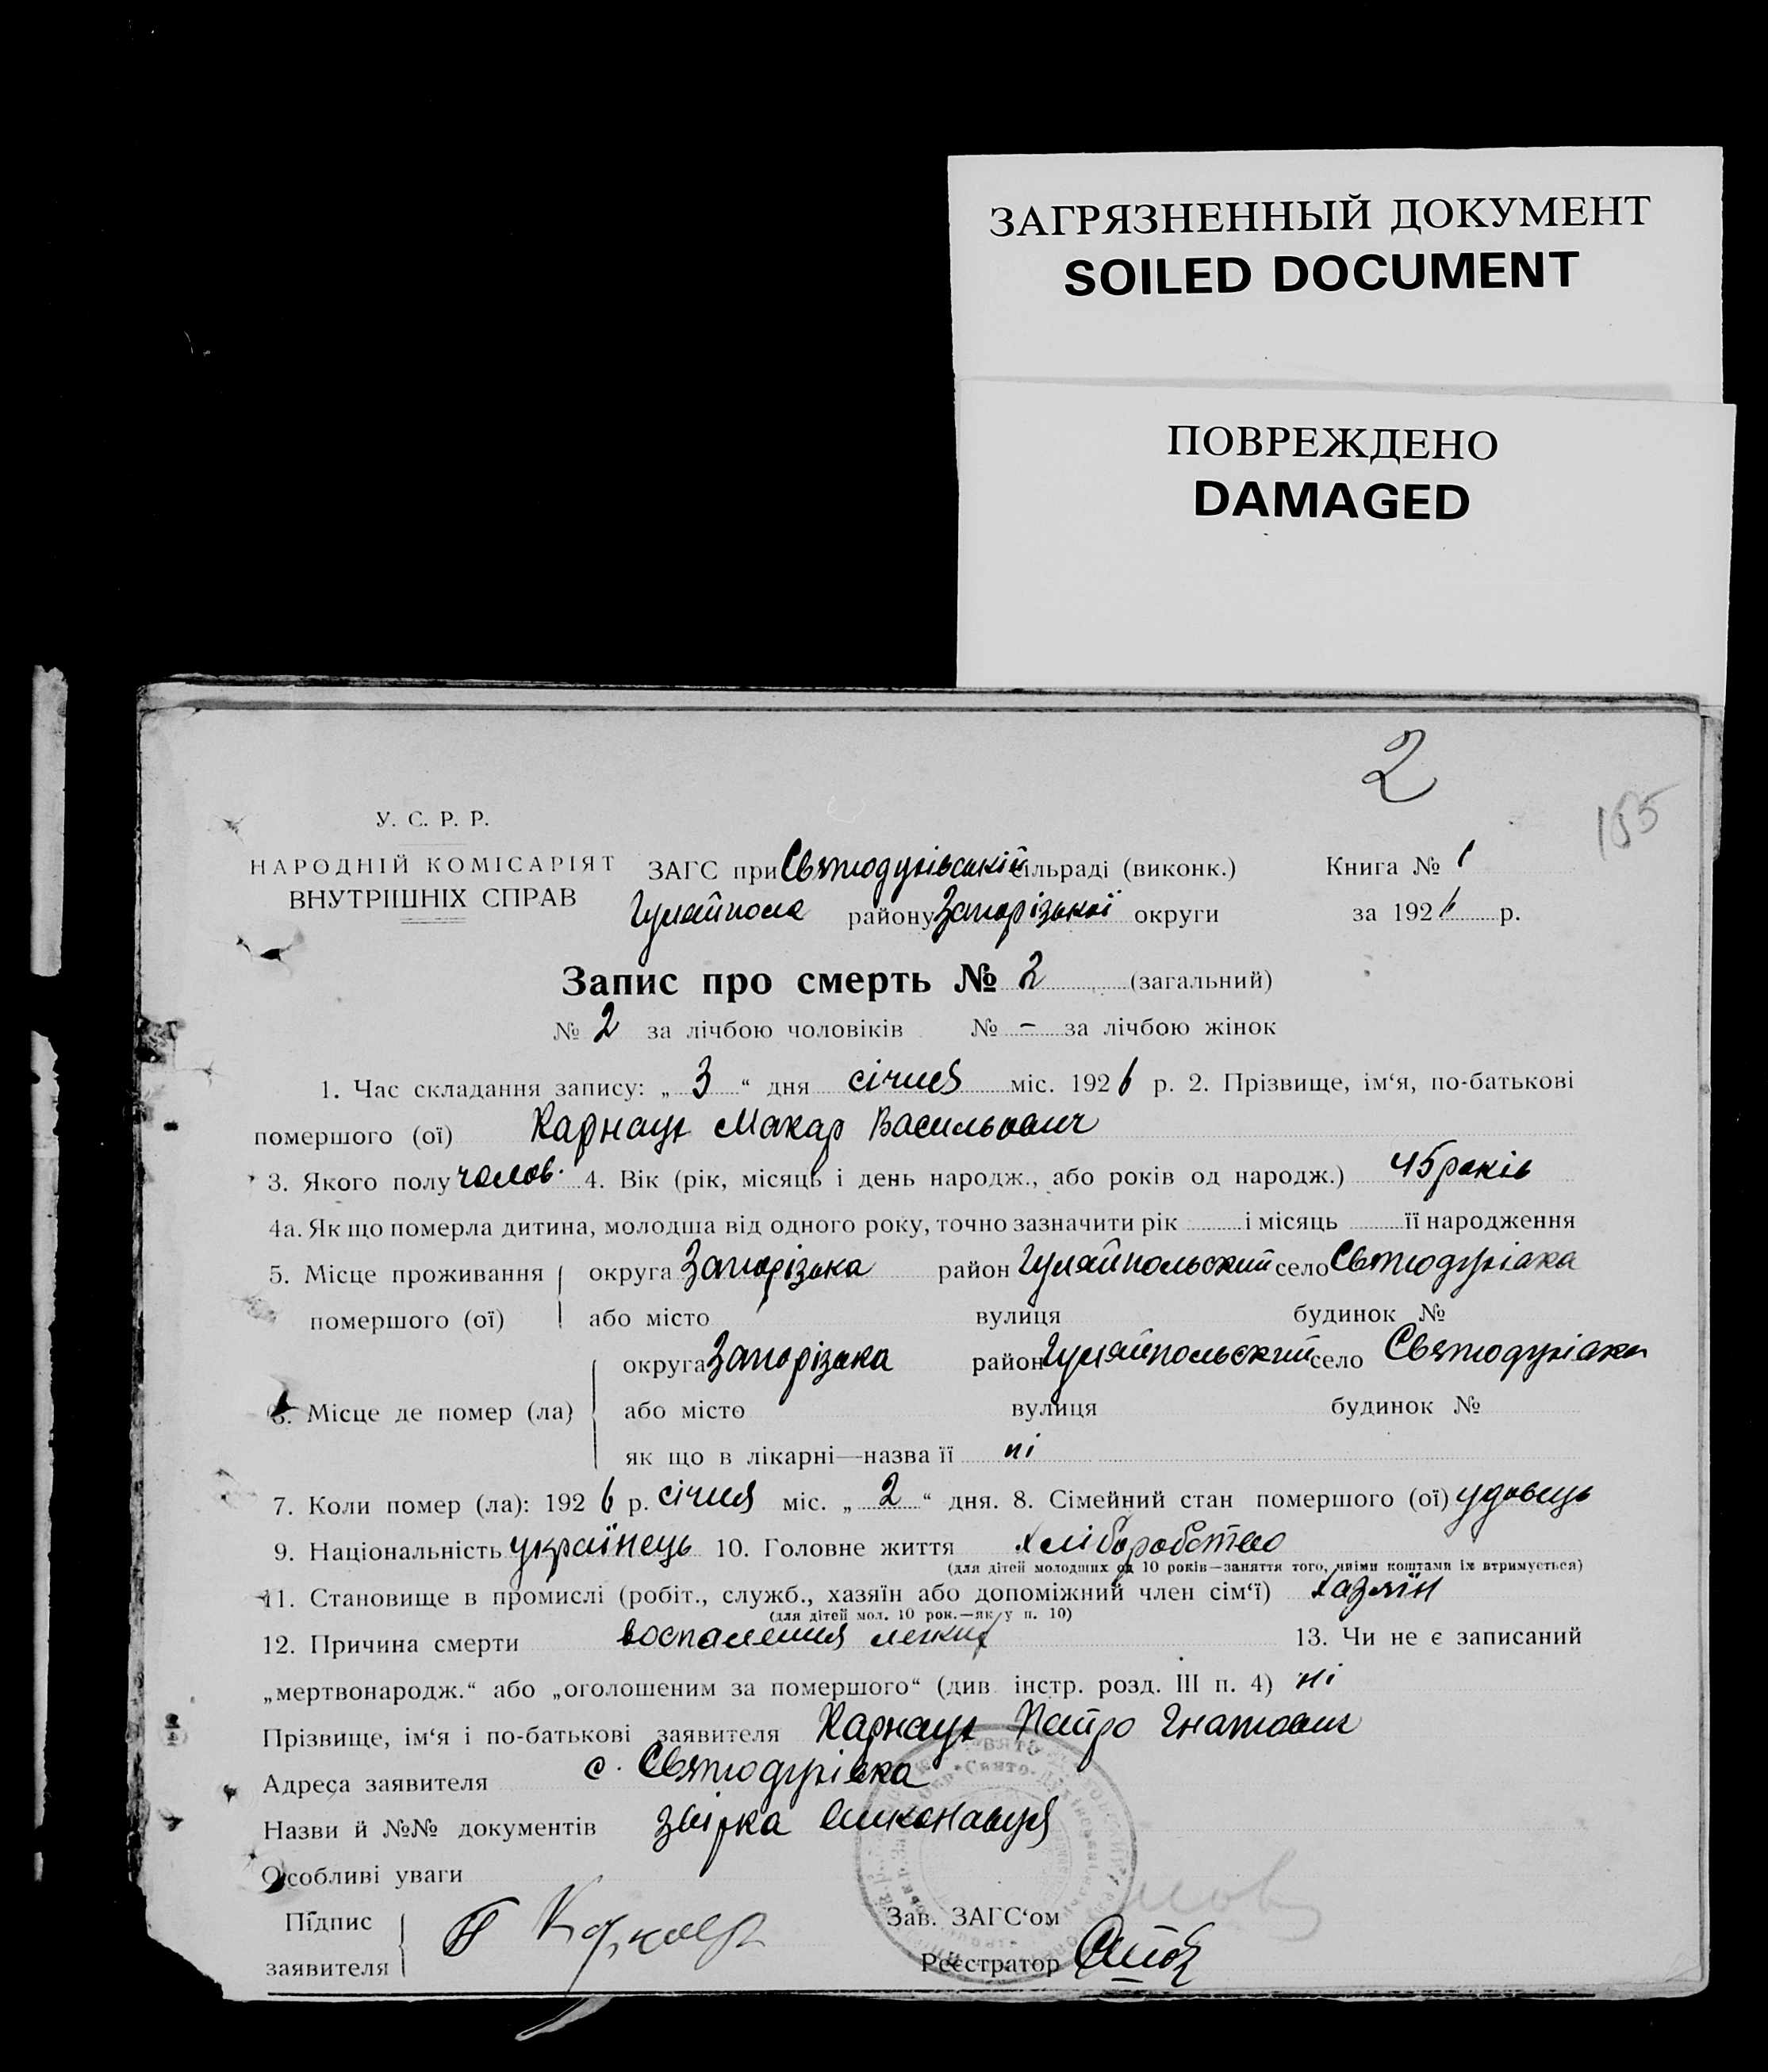 ЗАГРЯЗНЕННЫЙ ДОКУМЕНТ
SOILED DOCUMENT
ПОВРЕЖДЕНО
DAMAGED
2
155
У. С. Р. Р.
НАРОДНІЙ КОМІСАРІЯТ
ВНУТРІШНІХ СПРАВ
ЗАГС при Святодухівській сільраді (виконк.) Книга № 1
Гуляйполе району Запорізької округи за 1926 р.
Запис про смерть № 2 (загальний)
№ 2 за лічбою чоловіків № – за лічбою жінок
1. Час складання запису: „ 3 “ дня січня міс. 1926 р. 2. Прізвище, ім‘я, по-батькові
помершого (ої) Карнаух Макар Васильович
3. Якого полу чолов. 4. Вік (рік, місяць і день народж., або років од народж.) 45 років
4а. Як що померла дитина, молодша від одного року, точно зазначити рік і місяць її народження
5. Місце проживання округа Запорізька район Гуляйпольский село Святодухівка
помершого (ої) або місто вулиця будинок №
округа Запорізька район Гуляйпольский село Святодухівка
6. Місце де помер (ла) або місто вулиця будинок №
як що в лікарні—назва її ні
7. Коли помер (ла): 1926 р. січня міс. „ 2 “ дня. 8. Сімейний стан помершого (ої) удовець
9. Національність українець 10. Головне життя хліборобство
(для дітей молодших од 10 років—заняття того, чиїми коштами їх втримується)
11. Становище в промислі (робіт., служб., хазяїн або допоміжний член сім‘ї) хазяїн
(для дітей мол. 10 рок.—як у п. 10)
12. Причина смерти воспаления легких 13. Чи не є записаний
„мертвонародж.“ або „оголошеним за помершого“ (див. інстр. розд. III п. 4) ні
Прізвище, ім‘я і по-батькові заявителя Карнаух Петро Гнатович
Адреса заявителя с. Святодухівка
Назви й №№ документів звірка виконавця
Особливі уваги
Підпис
заявителя
Зав. ЗАГС‘ом
Реєстратор